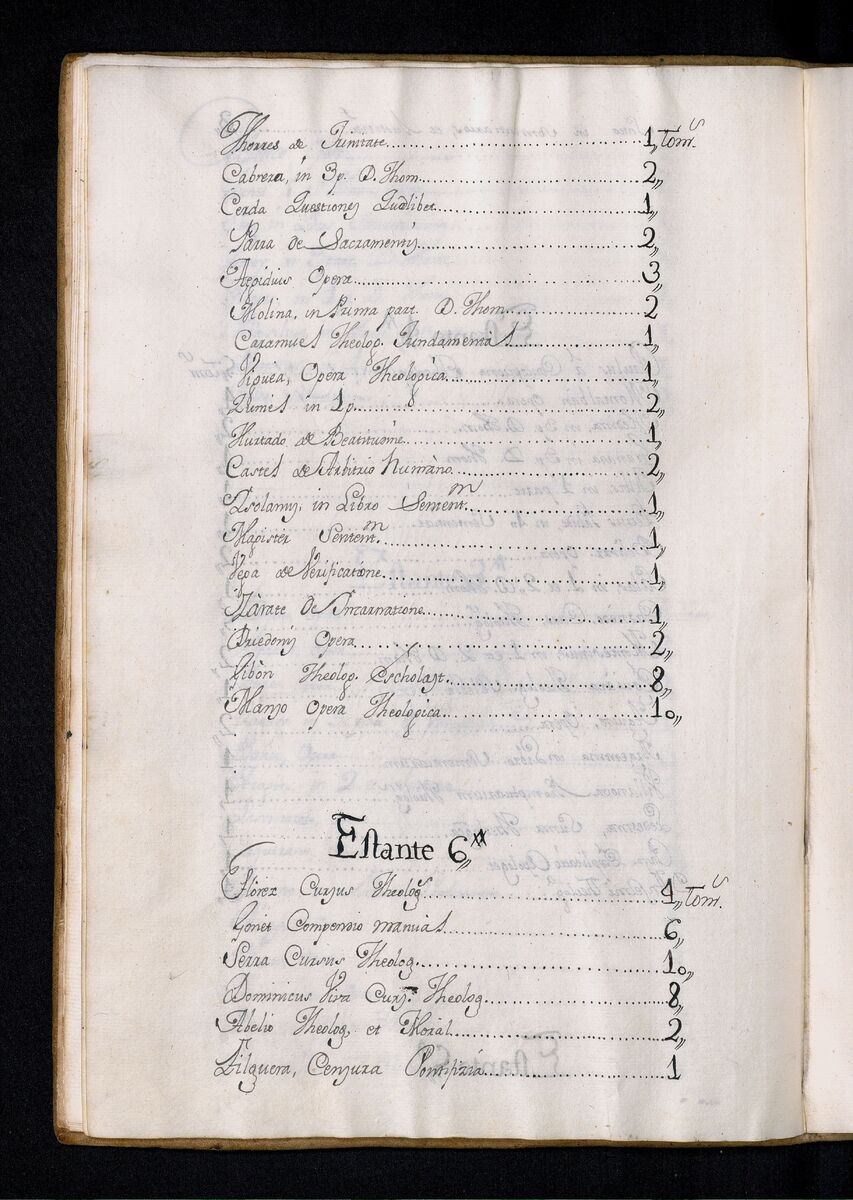 Thorres de Trinitate 1,, Tom.s
Cabrera, in 3 p. D. Thom. 2,,
Cerda Questiones Quodlibet. 1,,
Parra de Sacramentis 2,,
Aegidius Opera 3
Molina, in Prima part. D. Thom. 2
Caramuel Theolog. Fundamental 1,,
Viguea, Opera Theologica 1,,
Zumel in 1 p. 2,,
Hurtado de Beatitudine 1,,
Castel de Arbitrio humàno 2,,
Isolanis, in Libro Sentent.m 1,,
Magister Sentent.m 1,,
Vega de Verificatione 1,,
Zàrate De Incarnatione 1,,
Driedonis Opera 2,,
Gibòn Theolog. Escholast. 8,,
Manso Opera Theologica 10,,
Estante 6,,
Flòrez Cursus Theolog.s 4,, Tom.s
Gonet Compendio manual 6,,
Serra Cursus Theolog. 10,,
Dominicus Viva Curs. Theolog. 8,,
Abelio Theolog. et Moral 2,,
Filguera, Censura Pontifizia 1